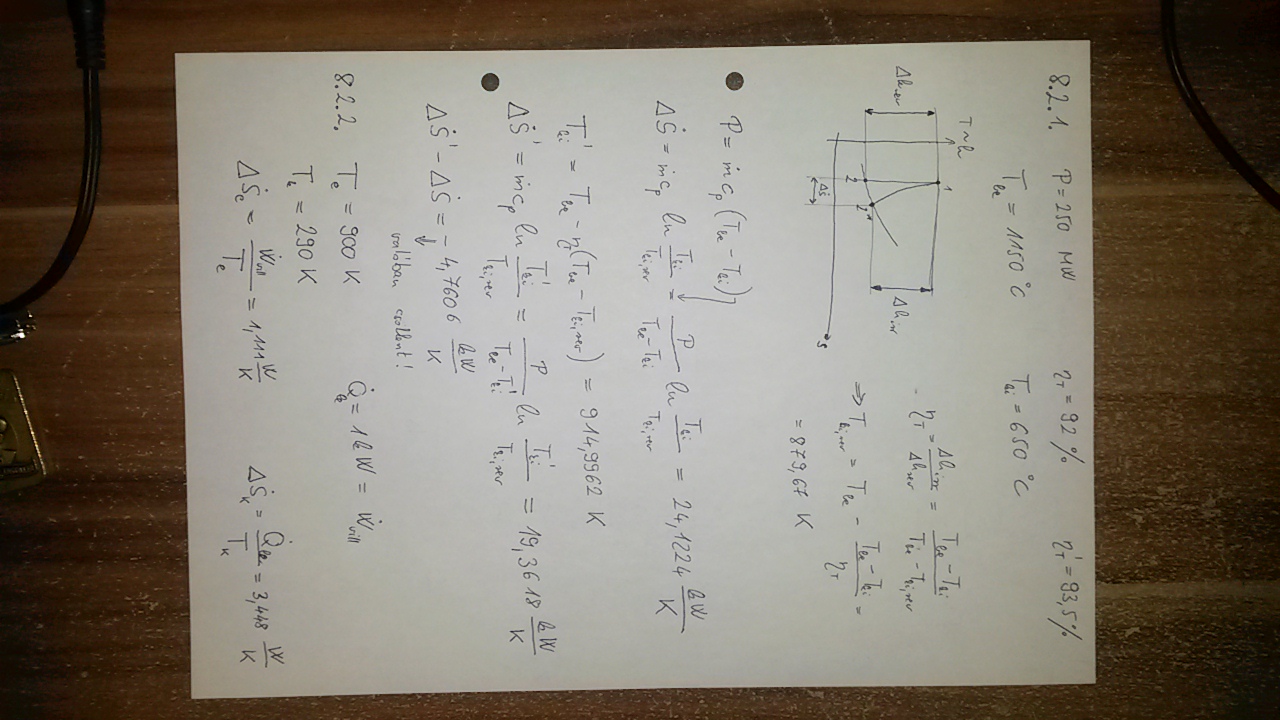 8.2.1. P = 250 MW η_T = 92 % η_T' = 93,5 %
T_be = 1150 °C T_ki = 650 °C
T~h
1
Δh_rev
Δh_irr
2
2*
Δṡ
s
- η_T = Δh_irr / Δh_rev = (T_be - T_ki) / (T_be - T_ki,rev)
⇒ T_ki,rev = T_be - (T_be - T_ki) / η_T =
= 879,67 K
P = ṁ c_p (T_be - T_ki)
ΔṠ = ṁ c_p ln (T_ki / T_ki,rev) = P / (T_be - T_ki) ln (T_ki / T_ki,rev) = 24,1224 kW/K
T_ki' = T_be - η_T' (T_be - T_ki,rev) = 914,9962 K
ΔṠ' = ṁ c_p ln (T_ki' / T_ki,rev) = P / (T_be - T_ki') ln (T_ki' / T_ki,rev) = 19,3618 kW/K
ΔṠ' - ΔṠ = - 4,7606 kW/K
↓ valóban csökkent!
8.2.2. T_e = 900 K Q̇ = 1 kW = Ẇ_vill
T_k = 290 K
ΔṠ_e = Ẇ_vill / T_e = 1,111 W/K ΔṠ_k = Q̇ / T_k = 3,448 W/K